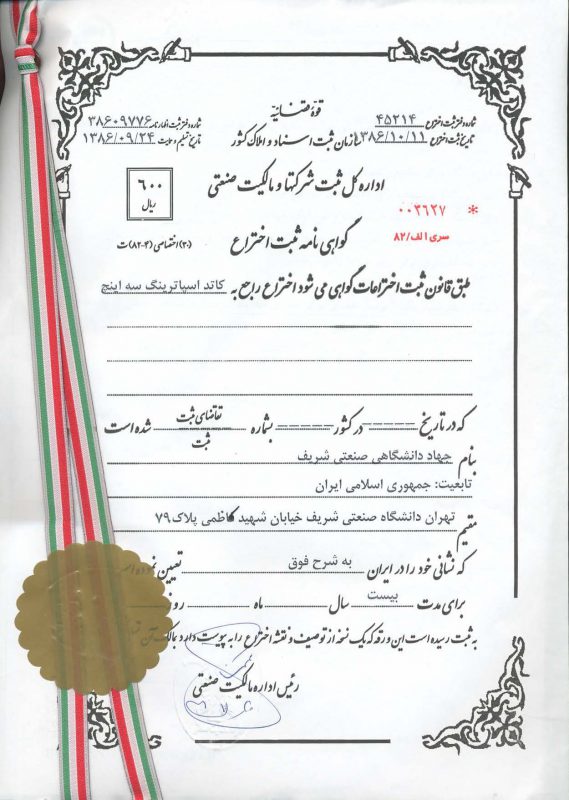 قوهٔ قضائیه
شماره دفتر ثبت اختراع ۴۵۲۱۴
شماره دفتر ثبت اظهارنامه ۳۸۶۰۹۷۷۶
تاریخ ثبت اختراع ۱۳۸۶/۱۰/۱۱
سازمان ثبت اسناد و املاک کشور
تاریخ تسلیم ۱۳۸۶/۰۹/۲۴
اداره کل ثبت شرکتها و مالکیت صنعتی
۶۰۰
ریال
* ۰۰۳۶۲۷
سری الف/۸۲
گواهی نامه ثبت اختراع
(۳۰) اختصاصی (۴-۸۲) ت
طبق قانون ثبت اختراعات گواهی می شود اختراع راجع به کاتد اسپاترینگ سه اینچ
که در تاریخ ----- در کشور ----- بشماره تقاضای ثبت شده است
ثبت
بنام جهاد دانشگاهی صنعتی شریف
تابعیت: جمهوری اسلامی ایران
مقیم تهران دانشگاه صنعتی شریف خیابان شهید کاظمی پلاک ۷۹
که نشانی خود را در ایران به شرح فوق تعیین
برای مدت بیست سال ماه
به ثبت رسیده است این ورقه که یک نسخه از توصیف و نقشه اختراع را به پیوست دارد بمالک آن
رئیس اداره مالکیت صنعتی